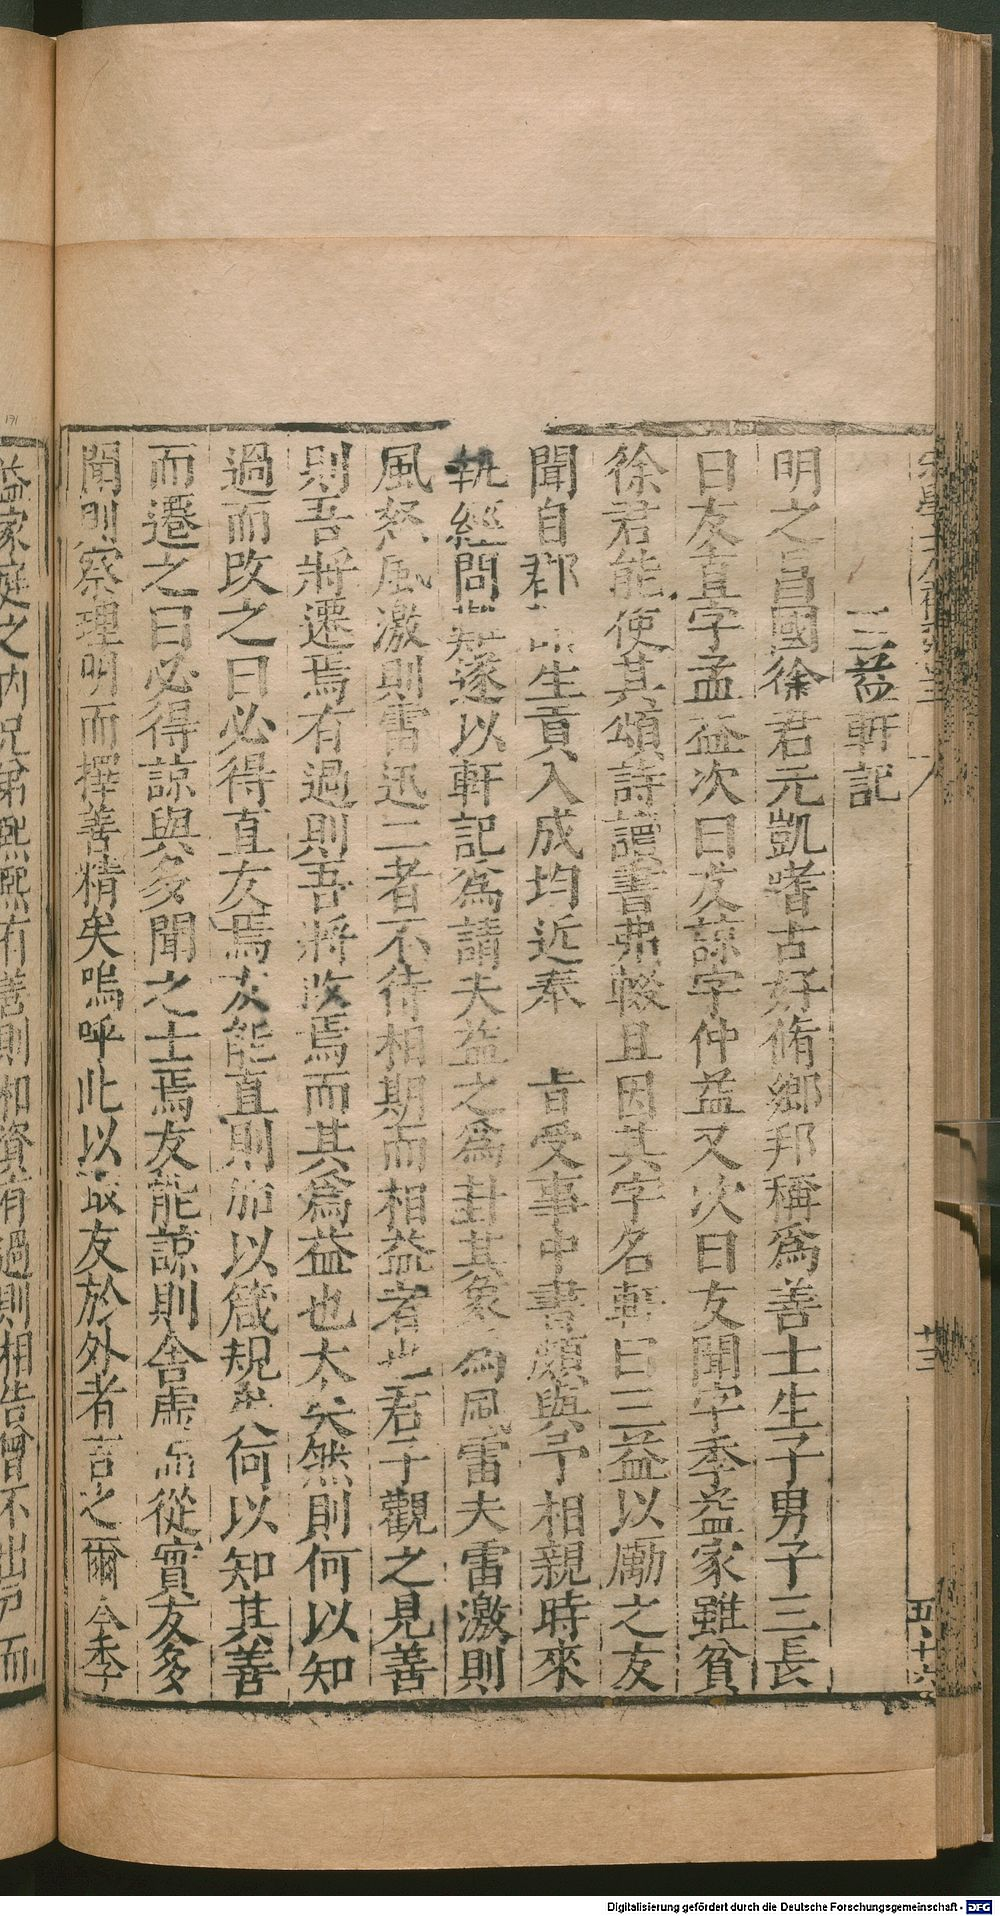 三益軒記
明之昌國徐君元凱嗜古好脩鄉邦稱爲善士生子男子三長
曰友直字孟益次曰友諒字仲益又次曰友聞字季益家雖貧
徐君能使其頌詩讀書弗輟且因其字名軒曰三益以勵之友
聞自郡 生貢入成均近奉 旨受事中書頗與予相親時來
執經問難遂以軒記爲請夫益之爲卦其象爲風雷夫雷激則
風怒風激則雷迅二者不待相期而相益者也君子觀之見善
則吾將遷焉有過則吾將改焉而其爲益也大矣然則何以知
過而改之曰必得直友焉友能直則 以箴規 何以知其善
而遷之曰必得諒與多聞之士焉友能諒則舍虛而從實友多
聞則察理明而擇善精矣嗚呼此以取友於外者言之爾今季
益家庭之內兄弟熙熙有善則相資有過則相告曾不出戶而
廿三
五十六
Digitalisierung gefördert durch die Deutsche Forschungsgemeinschaft - DFG